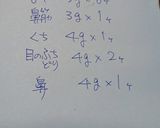 鼻筋 3g×1ヶ
くち 4g×1ヶ
目のふちどり 4g×2ヶ
鼻 4g×1ヶ